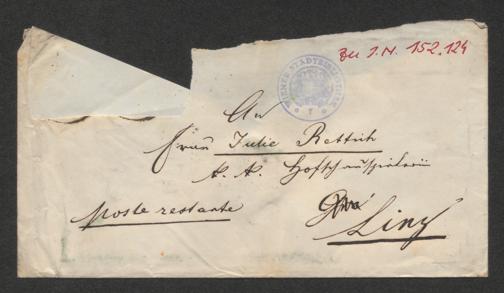 Zu I.N. 152.124
WIENER STADTBIBLIOTHEK
An
Frau Julie Rettich
k. k. Hofschauspielerin
Poste restante
Linz